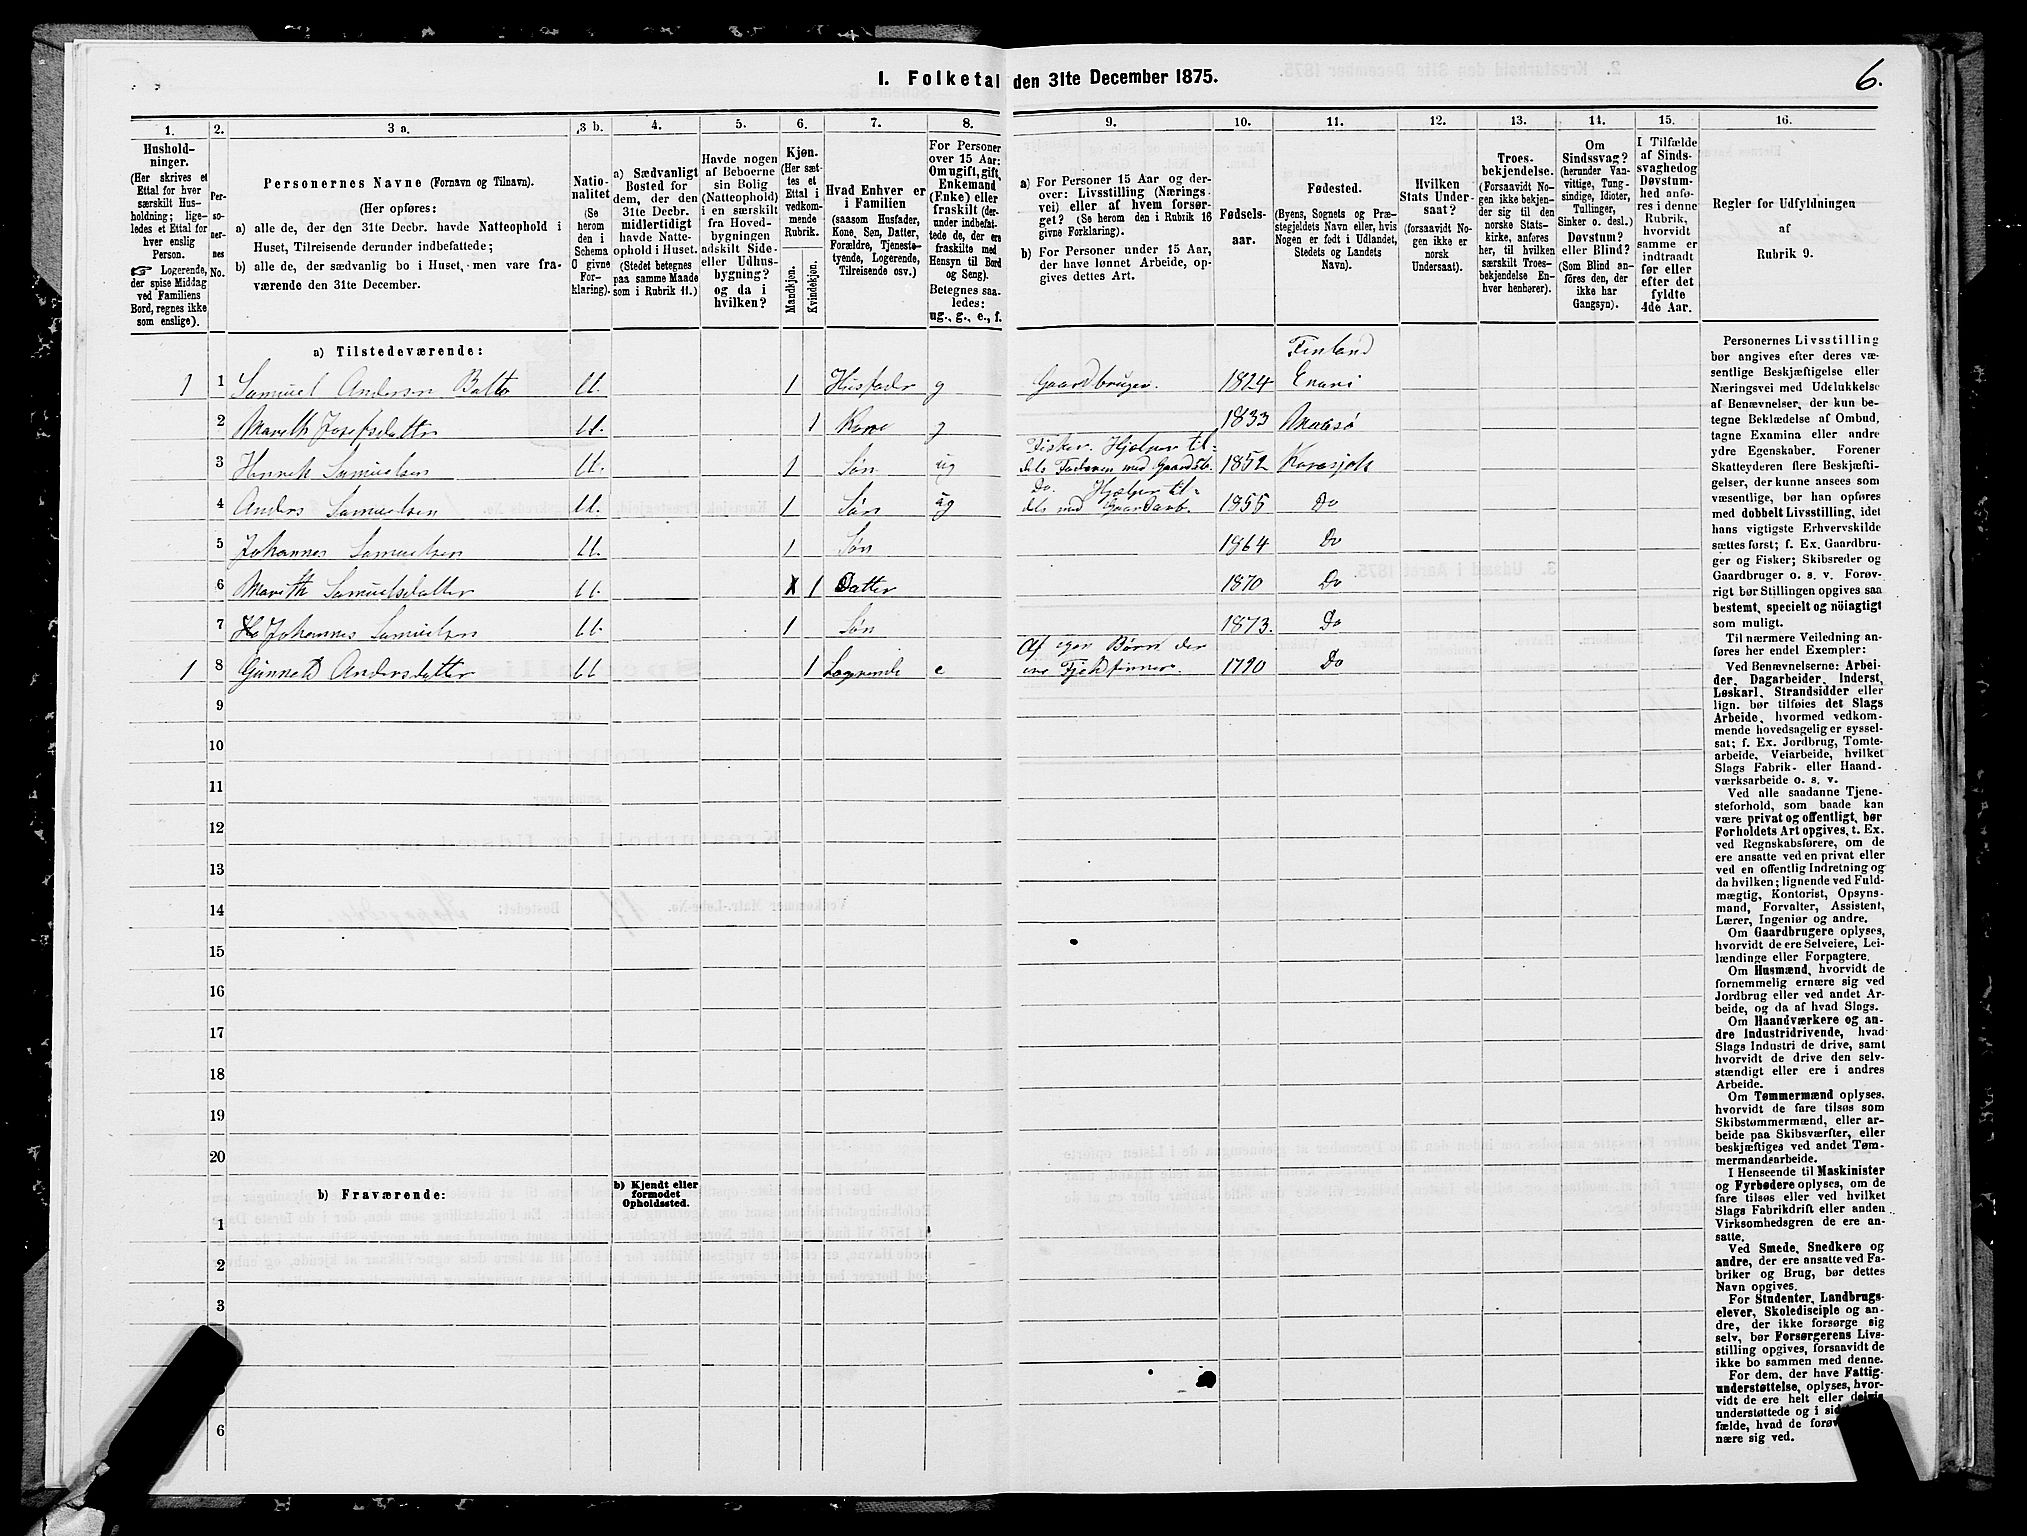 I. Folketal den 31te December 1875.
6.
1.
Hushold-
ninger.
(Her skrives et
Ettal for hver
særskilt Hus-
holdning; lige-
ledes et Ettal for
hver enslig
Person.
☞ Logerende,
der spise Middag
ved Familiens
Bord, regnes ikke
som enslige).
2.
Per-
so-
ner-
nes
No.
3 a.
Personernes Navne (Fornavn og Tilnavn).
(Her opføres:
a) alle de, der den 31te Decbr. havde Natteophold i
Huset, Tilreisende derunder indbefattede;
b) alle de, der sædvanlig bo i Huset, men vare fra-
værende den 31te December.
3 b.
Natio-
nalitet
(Se
herom
den i
Schema
O givne
For-
klaring).
4.
a) Sædvanligt
Bosted for
dem, der den
31te Decbr.
midlertidigt
havde Natte-
ophold i Huset.
(Stedet betegnes
paa samme Maade
som i Rubrik 11.)
5.
Havde nogen
af Beboerne
sin Bolig
(Natteophold)
i en særskilt
fra Hoved-
bygningen
adskilt Side-
eller Udhus-
bygning?
og da i
hvilken?
6.
Kjøn.
(Her sæt-
tes et
Ettal i
vedkom-
mende
Rubrik.
Mandkjøn.
Kvindekjøn.
7.
Hvad Enhver er
i Familien
(saasom Husfader,
Kone, Søn, Datter,
Forældre, Tjeneste-
tyende, Logerende,
Tilreisende osv.)
8.
For Personer
over 15 Aar:
Om ugift, gift,
Enkemand
(Enke) eller
fraskilt (der-
under indbefat-
tede de, der ere
fraskilte med
Hensyn til Bord
og Seng).
Betegnes saa-
ledes:
ug., g., e., f.
9.
a) For Personer 15 Aar og der-
over: Livsstilling (Nærings-
vei) eller af hvem forsør-
get? (Se herom den i Rubrik 16
givne Forklaring).
b) For Personer under 15 Aar,
der have lønnet Arbeide, op-
gives dettes Art.
10.
Fødsels-
aar.
11.
Fødested.
(Byens, Sognets og Præ-
stegjeldets Navn eller, hvis
Nogen er født i Udlandet,
Stedets og Landets
Navn).
12.
Hvilken
Stats Under-
saat?
(forsaavidt No-
gen ikke er
norsk
Undersaat).
13.
Troes-
bekjendelse.
(Forsaavidt No-
gen ikke bekjen-
der sig til den
norske Stats-
kirke, anføres
her, til hvilken
særskilt Troes-
bekjendelse En-
hver henhører).
14.
Om
Sindssvag?
(herunder Van-
vittige, Tung-
sindige, Idioter,
Tullinger,
Sinker o. desl.)
Døvstum?
eller Blind?
(Som Blind an-
føres den, der
ikke har
Gangsyn).
15.
I Tilfælde
af Sinds-
svaghed og
Døvstum-
hed anfø-
res i denne
Rubrik,
hvorvidt
samme er
indtraadt
før eller
efter det
fyldte
4de Aar.
16.
Regler for Udfyldningen
af
Rubrik 9.
a) Tilstedeværende:
Finland
1 1 Samuel Andersen Balto U. 1 Husfader g Gaardbruger. 1824 Enari
2 Mareth Josefsdatter U. 1 Kone g 1833
3 Henrik Samuelsen U. 1 Søn ug Fisker. Hjelper til-
dels Faderen med Gaardsb. 1852 Karasjok
4 Anders Samuelsen U. 1 Søn ug Do. Hjælper til-
dels med Gaardsarb. 1855 Do
5 Johannes Samuelsen U. 1 Søn 1864 Do
6 Marith Samuelsdatter U. 1 Datter 1870 Do
7 Johannes Samuelsen U. 1 Søn 1873. Do
1 8 Andersdatter U 1 Logerende e Af egen Børn der
ere Fjeldfinner. 1790 Do
9
10
11
12
13
14
15
16
17
18
19
20
b) Fraværende:
b) Kjendt eller
formodet
Opholdssted.
1
2
3
6
Personernes Livsstilling
bør angives efter deres væ-
sentlige Beskjæftigelse eller
Næringsvei med Udelukkelse
af Benævnelser, der kun be-
tegne Beklædelse af Ombud,
tagne Examina eller andre
ydre Egenskaber. Forener
Skatteyderen flere Beskjæfti-
gelser, der kunne ansees som
væsentlige, bør han opføres
med dobbelt Livsstilling, idet
hans vigtigste Erhvervskilde
sættes først; f. Ex. Gaardbru-
ger og Fisker; Skibsreder og
Gaardbruger o. s. v. Forøv-
rigt bør Stillingen opgives saa
bestemt, specielt og nöiagtigt
som muligt.
Til nærmere Veiledning an-
føres her endel Exempler:
Ved Benævnelserne: Arbei-
der, Dagarbeider, Inderst,
Løskarl, Strandsidder eller
lign. bør tilføies det Slags
Arbeide, hvormed vedkom-
mende hovedsagelig er syssel-
sat; f. Ex. Jordbrug, Tomte-
arbeide, Veiarbeide, hvilket
Slags Fabrik- eller Haand-
værksarbeide o. s. v.
Ved alle saadanne Tjene-
steforhold, som baade kan
være privat og offentligt, bør
Forholdets Art opgives, t. Ex.
ved Regnskabsførere, om de
ere ansatte ved en privat eller
ved en offentlig Indretning og
da hvilken; lignende ved Fuld-
mægtig, Kontorist, Opsyns-
mand, Forvalter, Assistent,
Lærer, Ingeniør og andre.
Om Gaardbrugere oplyses,
hvorvidt de ere Selveiere, Lei-
lændinge eller Forpagtere.
Om Husmænd, hvorvidt de
fornemmelig ernære sig ved
Jordbrug eller ved andet Ar-
beide, og da af hvad Slags.
Om Haandværkere og an-
dre Industridrivende, hvad
Slags Industri de drive, samt
hvorvidt de drive den selv-
stændigt eller ere i andres
Arbeide.
Om Tømmermænd oplyses,
hvorvidt de fare tilsøs som
Skibstømmermænd, eller ar-
beide paa Skibsværfter, eller
beskjæftiges ved andet Tøm-
mermandsarbeide.
I Henseende til Maskinister
og Fyrbødere oplyses, om de
fare tilsøs eller ved hvilket
Slags Fabrikdrift eller anden
Virksomhedsgren de ere an-
satte.
Ved Smede, Snedkere og
andre, der ere ansatte ved Fa-
briker og Brug, bør dettes
Navn opgives.
For Studenter, Landbrugs-
elever, Skoledisciple og an-
dre, der ikke forsørge sig
selv, bør Forsørgerens Livs-
stilling opgives, forsaavidt de
ikke bo sammen med denne.
For dem, der have Fattig-
understøttelse, oplyses, hvor-
vidt de ere helt eller delvis
understøttede og i
fælde, hvad de
nære sig ved.